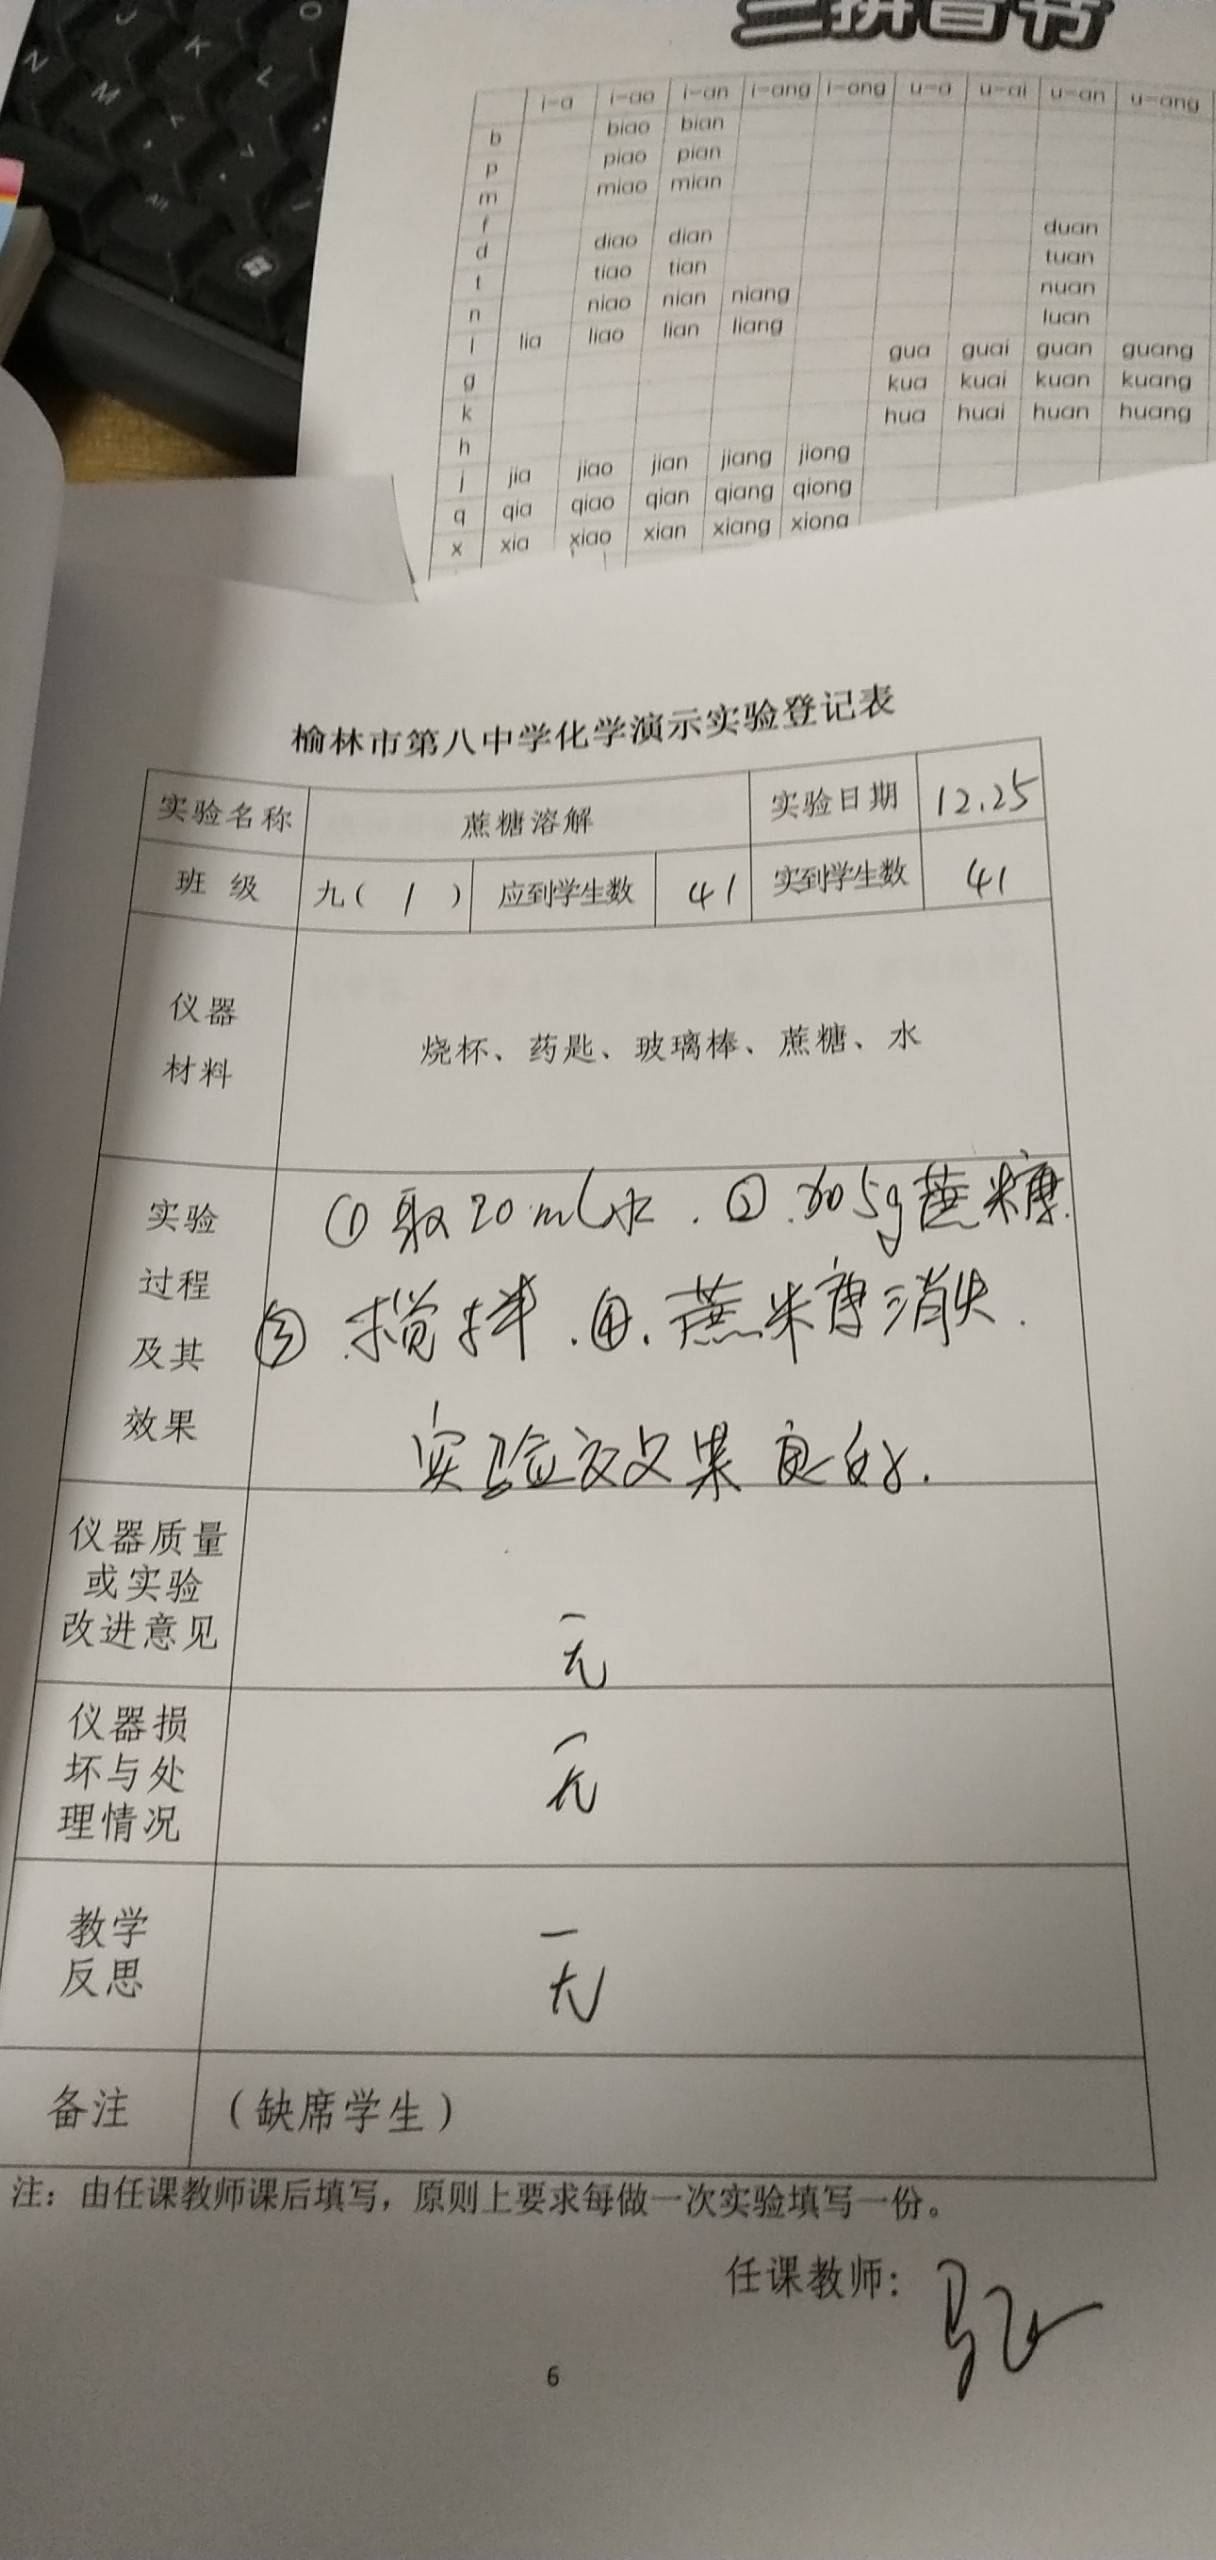 三拼音节
i-a i-ao i-an i-ang i-ong u-a u-ai u-an u-ang
b biao bian
p piao pian
m miao mian
f
d diao dian duan
t tiao tian tuan
n niao nian niang nuan
l lia liao lian liang luan
g gua guai guan guang
k kua kuai kuan kuang
h hua huai huan huang
j jia jiao jian jiang jiong
q qia qiao qian qiang qiong
x xia xiao xian xiang xiong
N M J K L O
Alt
榆林市第八中学化学演示实验登记表
实验名称 蔗糖溶解 实验日期 12.25
班 级 九( 1 ) 应到学生数 41 实到学生数 41
仪器
材料
烧杯、药匙、玻璃棒、蔗糖、水
实验
过程
及其
效果
① 取20ml水. ②.加5g蔗糖.
③ 搅拌.④.蔗糖消失.
实验效果良好.
仪器质量
或实验
改进意见
无
仪器损
坏与处
理情况
无
教学
反思
无
备注 (缺席学生)
注：由任课教师课后填写，原则上要求每做一次实验填写一份。
任课教师:
6